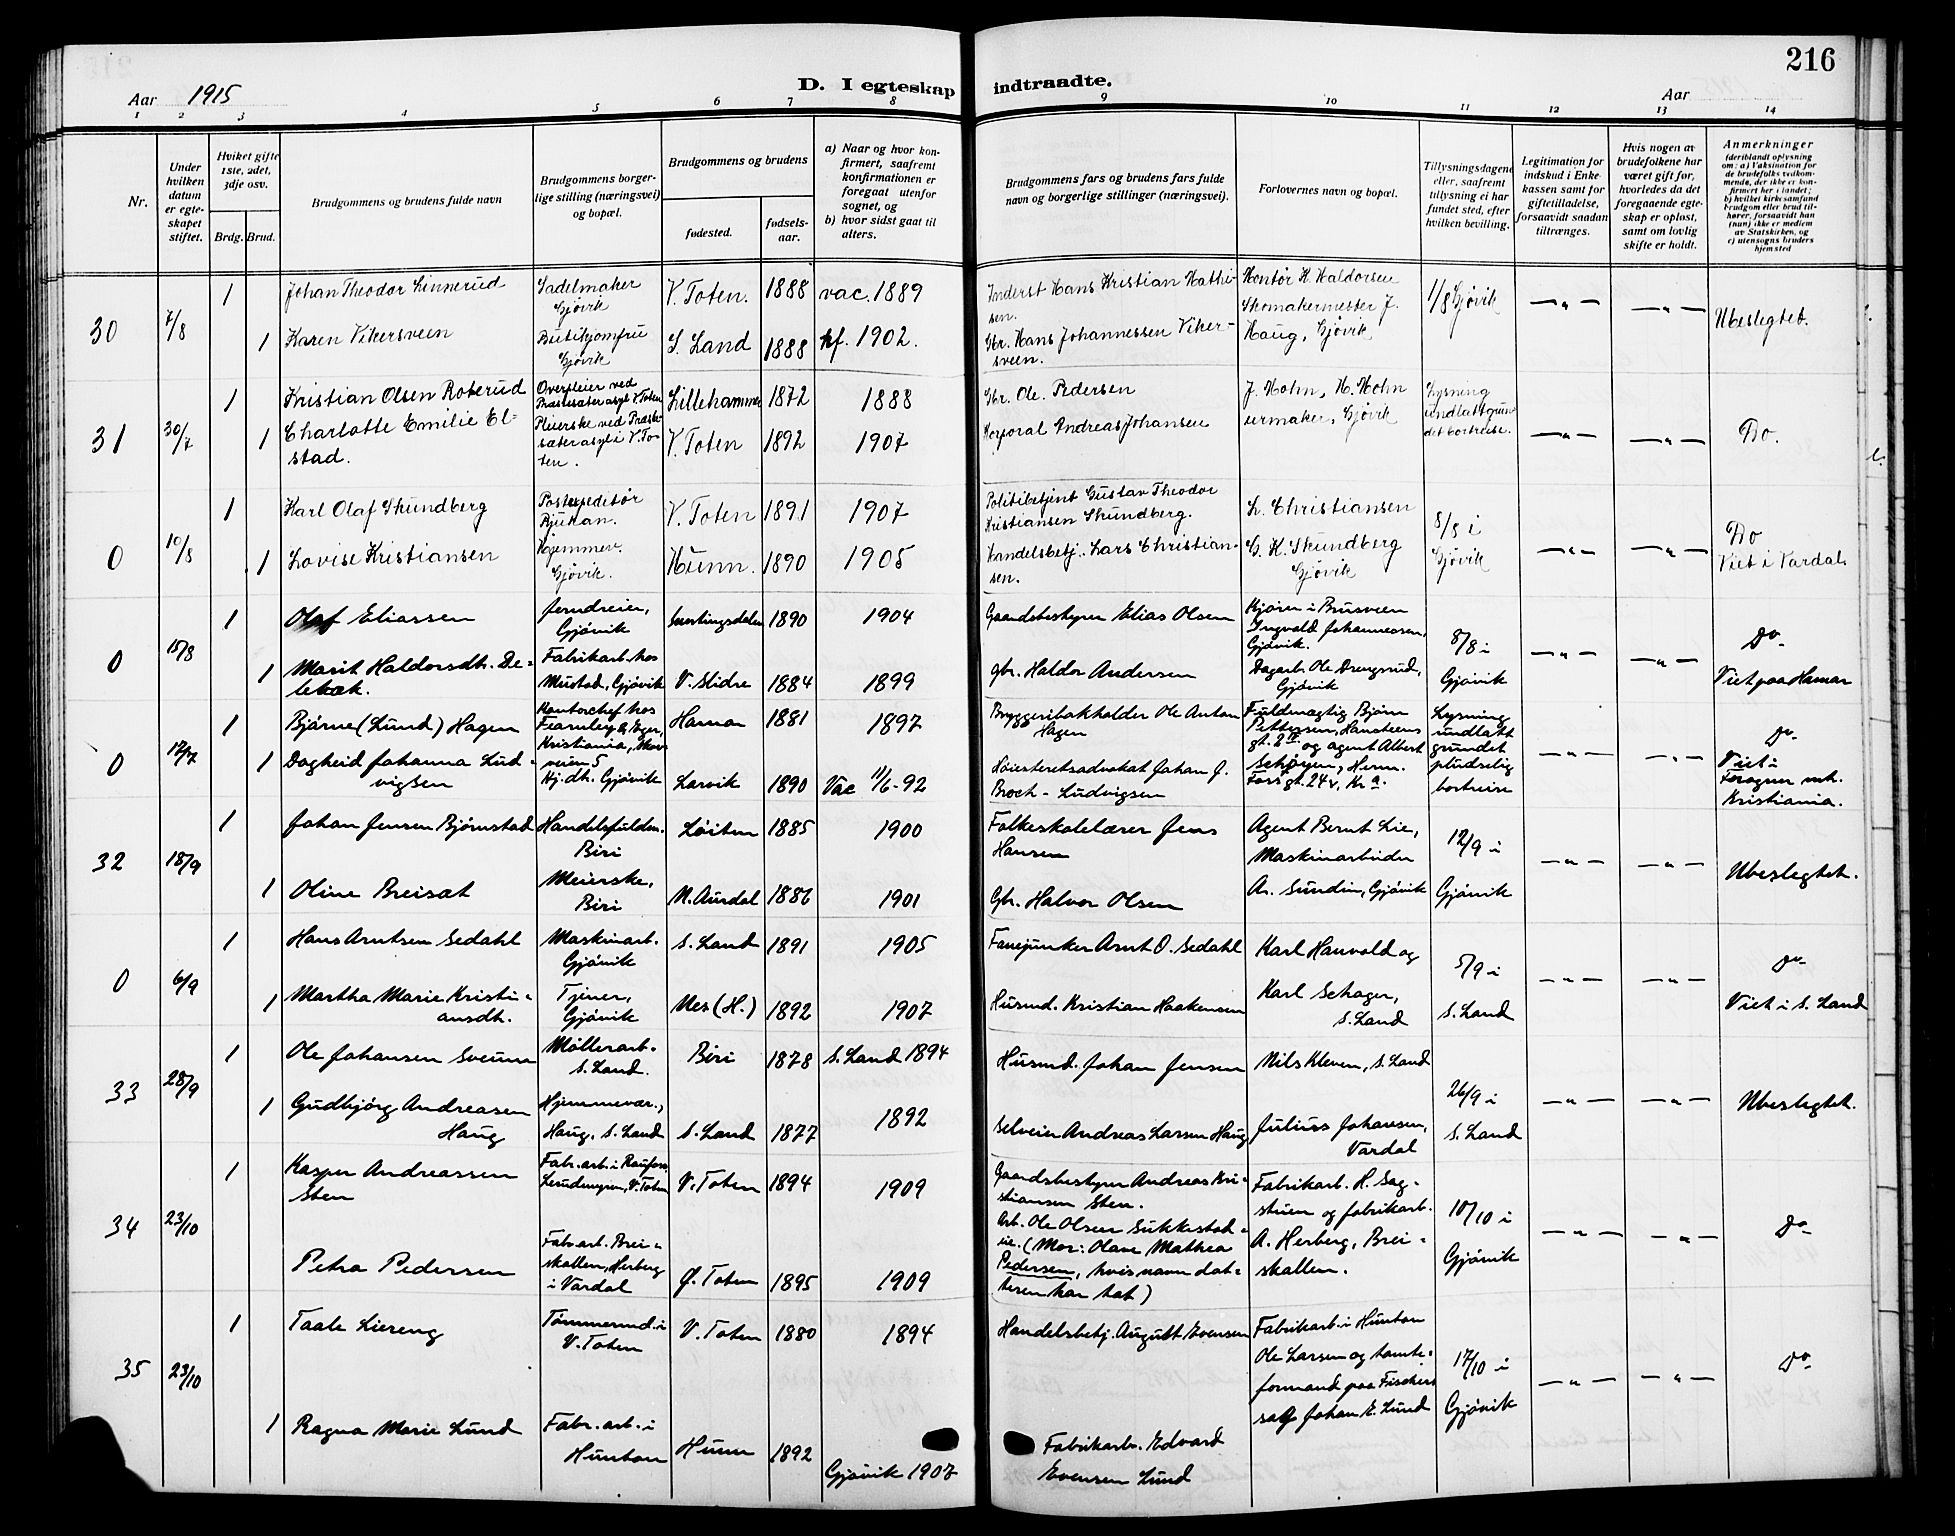 216
Aar 1915
D. I egteskap indtraadte.
Aar
1 2 3 4 5 6 7 8 9 10 11 12 13 14
Nr.
Under hvilken datum er egteskapet stiftet.
Hvilket gifte 1ste, 2det, 3dje osv.
Brdg. Brud.
Brudgommens og brudens fulde navn
Brudgommens borgerlige stilling (næringsvei) og bopæl.
Brudgommens og brudens
fødested.
fødselsaar.
a) Naar og hvor konfirmert, saafremt konfirmationen er foregaat utenfor sognet, og
b) hvor sidst gaat til alters.
Brudgommens fars og brudens fars fulde navn og borgerlige stillinger (næringsvei).
Forlovernes navn og bopæl.
Tillysningsdagene eller, saafremt tillysning ei har fundet sted, efter hvilken bevilling.
Legitimation for indskud i Enkekassen samt for giftetilladelse, forsaavidt saadan tiltrænges.
Hvis nogen av brudefolkene har været gift før, hvorledes da det foregaaende egteskap er opløst, samt om lovlig skifte er holdt.
Anmerkninger (deriblandt oplysning om: a) Vaksination for de brudefolks vedkommende, der ikke er konfirmert her i landet; b) hvilket kirkesamfund brudgom eller brud tilhører, forsaavidt han (hun) ikke er medlem av Statskirken, og c) utensogns bruders hjemsted
30 7/8 1 Johan Theodor Linnerud Sadelmaker Gjøvik V. Toten. 1888 vac. 1889 Inderst Hans Kristian Mathisen. Kontør H. Haldorsen 1/8 Gjøvik — " — — " — Ubeslegtet.
1 Karen Vikersveen Butikjomfru Gjøvik S. Land 1888 kf. 1902. Gbr. Hans Johannessen Vikersveen. Skomakermester J. Haug, Gjøvik
31 30/7 1 Kristian Olsen Roterud Overpleier ved Præstesæter asyl V. Toten Lillehammer 1872 1888 Gbr. Ole Pedersen J. Holm, H. Holm Lysning undlatt grundet bortreise. — " — — " — Do.
1 Charlotte Emilie Elstad. Pleierske ved Præstesæter asyl i V. Toten. V. Toten 1892 1907 Korporal Andreas Johansen urmaker, Gjøvik
0 10/8 1 Karl Olaf Skundberg Postexpeditør Rjukan. V. Toten 1891 1907 Politibetjent Gustav Theodor Kristiansen Skundberg. L. Christiansen 8/8 i Gjøvik — " — — " — Do Viet i Vardal
1 Lovise Kristiansen Hjemmev. Gjøvik. Hunn. 1890 1905 Handelsbetj. Lars Christiansen. G. K. Skundberg Gjøvik
0 15/8 1 Olaf Eliassen Jerndreier, Gjøvik 1890 1904 Gaardsbestyrer Elias Olsen Kjører i Brusveen Ingvald Johannesen, Gjøvik. 8/8 i Gjøvik — " — — " — Do. Viet paa Hamar
1 Marit Haldorsdh. Delebæk. Fabrikarb. hos Mustad, Gjøvik V. Slidre 1884 1899 gbr. Haldor Andersen Dagarb. Ole Drengsrud, Gjøvik
0 17/7 1 Bjarne (Lund) Hagen Kontorchef hos Fearnley & Eger, Kristiania, Hamar 1881 1897 Bryggeribokholder Ole Anton Hagen Fuldmægtig Bjørn Pettersen, Hansteens gt. 2 og agent Albert Lysning undlatt grundet pludselig bortreise — " — — " — Do. Viet i Frogner mh. Kristiania.
1 Dagheid Johanna Ludvigsen Hj. dh. Gjøvik Larvik 1890 Vac 11/6-92 Høiesteretsadvokat Johan J. Broch-Ludvigsen Schøyen, Herm. Foss gt. 24 v, Kra.
32 18/9 1 Johan Jensen Bjørnstad Handelsfuldm. Biri Løiten 1885 1900 Folkeskolelærer Jens Hansen Agent Bernt Lie, 12/9 i Gjøvik — " — — " — Ubeslegtet.
1 Oline Breisæt Meierske, Biri N. Aurdal 1886 1901 Gbr. Halvor Olsen Maskinarbeider Ar. Sundin, Gjøvik
0 6/9 1 Hans Arntsen Sedahl Maskinarb. Gjøvik S. Land 1891 1905 Fanejunker Arnt O. Sedahl Karl Hauvold og 5/9 i S. Land — " — — " — Do. Viet i S. Land
1 Martha Marie Kristiansdh. Tjener, Gjøvik Nes (H.) 1892 1907 Husmd. Kristian Haakensen Karl Schager, S. Land
33 28/9 1 Ole Johansen Sveum Møllerarb. S. Land. Biri 1878 S. Land 1894 Husmd. Johan Jensen Nils Kleven, S. Land 26/9 i S. Land — " — — " — Ubeslegtet.
1 Gudbjørg Andreasen Haug Hjemmevær., Haug, S. Land S. Land 1877 1892 Selveier Andreas Larsen Haug Julius Johansen, Vardal
34 23/10 1 Kasper Andreassen Sten Fabr. arb. i Raufoss V. Toten V. Toten 1894 1909 Gaardsbestyrer Andreas Kristiansen Sten. Fabrikarb. H. Sagstuen og fabrikarb. 10/10 i Gjøvik — " — — " — Do
1 Petra Pedersen Fabr. arb. Breiskallen, Herberg i Vardal Ø. Toten 1895 1909 Arb. Ole Olsen Sukkestadeie. (Mor: Olave Mathea Pedersen, hvis navn datteren har tat) A. Herberg, Breiskallen.
35 23/10 1 Taale Liereng Tømmermd. i V. Toten V. Toten 1880 1894 Handelsbetj. August Evensen Fabrikarb. i Hunton Ole Larsen og tomteformand paa Fiskers sag Johan E. Lund 17/10 i Gjøvik — " — — " — Do
1 Ragna Marie Lund Fabr. arb. i Hunton Hunn 1892 Gjøvik 1907 Fabrikarb. Edvard Evensen Lund